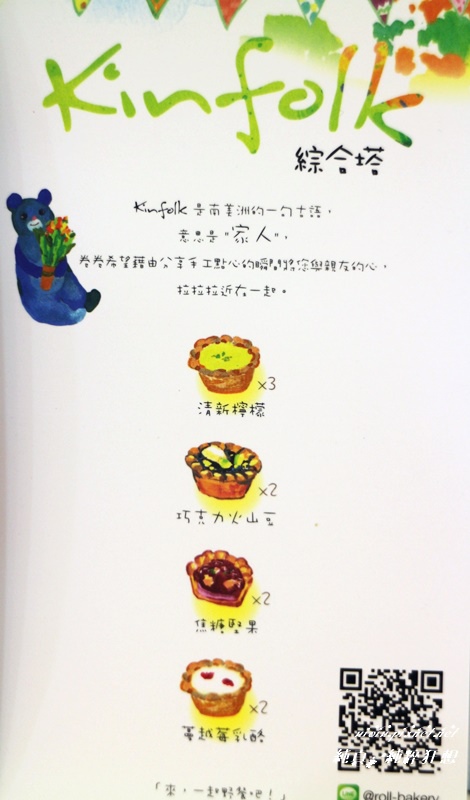 Kinfolk
綜合塔
Kinfolk 是南美洲的一句古語，
意思是"家人"，
卷卷希望藉由分享手工點心的瞬間將您與親友的心，
拉拉拉近在一起。
x3
清新檸檬
x2
巧克力火山豆
x2
焦糖堅果
x2
蔓越莓乳酪
「來，一起野餐吧！」
LINE
@roll-bakery